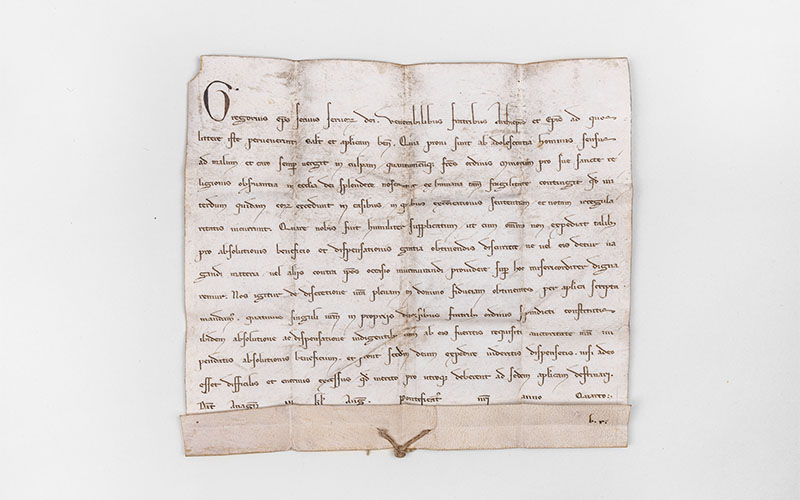 Gregorius epc servus servor dei. venerabilibus fratribus Archiepis et Epis ad quos
littere iste pervenerint salt et aplicam ben. Quia proni sunt ab adolescentia hominis sensus
ad malum et caro semp vergit in culpam quantumcumq fres ordinis Minorum pro sue sancte re
ligionis observantia in ecclia dei splendere noscantur ex humana tam fragilitate contingit qd in
terdum quidam eorz excedunt in casibus in quibus excommunicationis sententiam et notam irregula
ritatis incurrunt. Quare nobis fuit humiliter supplicatum ut cum omino non expediat talib
pro absolutionis beneficio et dispensationis gratia obtinendis discurrere ne vel eis detur va
gandi materia vel alijs contra ipsos occasio murmurandi providere sup hoc misericorditer digna
remur. Nos igitur de discretione vra plenam in domino fiduciam obtinentes per aplica scripta
mandam quatinus singuli vrm in proprijs diocesibus fratrib ordinis constitutis
ibidem absolutione ac dispensatione indigentib cum ab eis fueritis requisiti auctoritate nra im
pendatis absolutionis beneficium. et sicut secdm deum expedire videritis dispensetis. nisi adeo
esset difficilis et enormis excessus qd merito pro utroq deberent ad sedem aplicam destinari.
Dat Anagn kl Aug. Pontificat nri anno Quarto.
b. r.